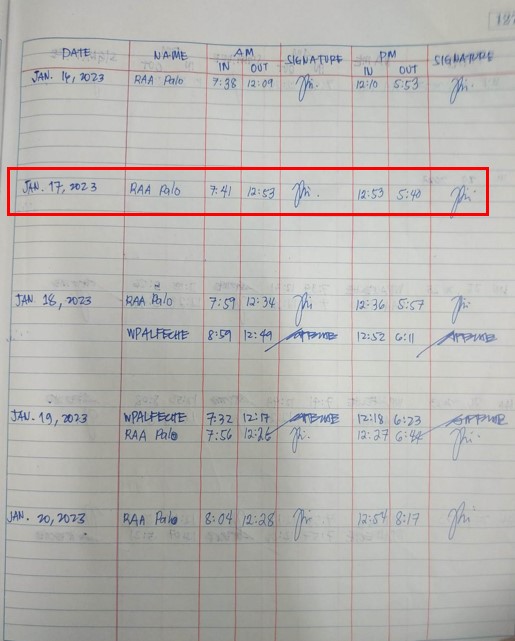 DATE NAME AM IN OUT SIGNATURE PM IN OUT SIGNATURE
JAN. 14, 2023 RAA Palo 7:38 12:09 12:10 5:53
JAN. 17, 2023 RAA Palo 7:41 12:53 12:53 5:40
JAN. 18, 2023 RAA Palo 7:59 12:34 12:36 5:57
WPALFECHE 8:59 12:49 12:52 6:11
JAN. 19, 2023 WPALFECHE 7:32 12:17 12:18 6:23
RAA Palo 7:56 12:26 12:27 6:44
JAN. 20, 2023 RAA Palo 8:04 12:28 12:54 8:17